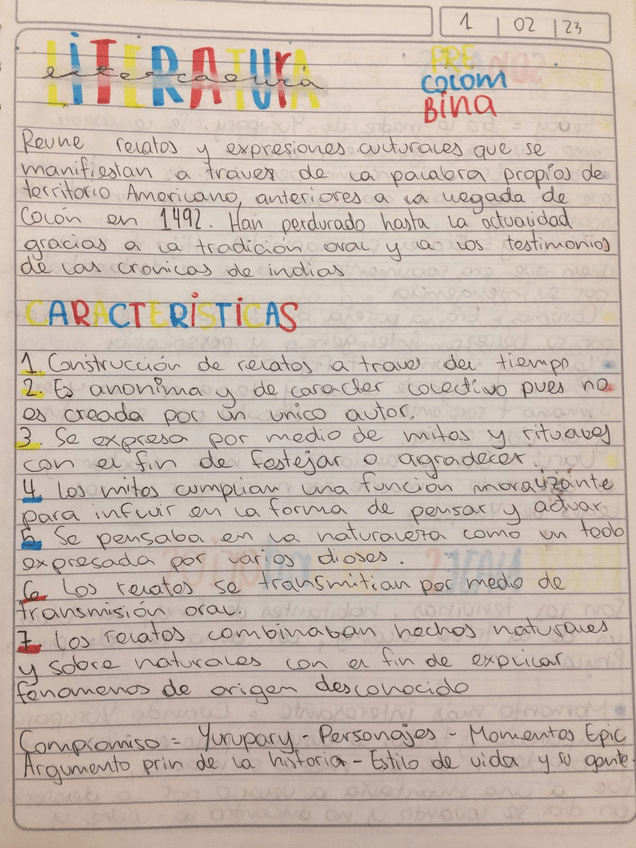 1 | 02 | 23
LITERATURA
literatura
PRE
COLOM
BINA
Reune relatos y expresiones culturales que se
manifiestan a traves de la palabra propios de
territorio Americano, anteriores a la llegada de
Colón en 1492. Han perdurado hasta la actualidad
gracias a la tradición oral y a los testimonios
de las cronicas de indias
CARACTERÍSTICAS
1. Construcción de relatos a traves del tiempo
2. Es anonima y de caracter colectivo pues no
es creada por un unico autor.
3. Se expresa por medio de mitos y rituales
con el fin de festejar o agradecer.
4. Los mitos cumplian una función moralizante
para influir en la forma de pensar y actuar
5. Se pensaba en la naturaleza como un todo
expresada por varios dioses.
6. Los relatos se transmitian por medio de
transmisión oral.
7. Los relatos combinaban hechos naturales
y sobre naturales con el fin de explicar
fenomenos de origen desconocido
Compromiso = Yurupary - Personajes - Momentos Epic
Argumento prin de la historia - Estilo de vida y su gente.